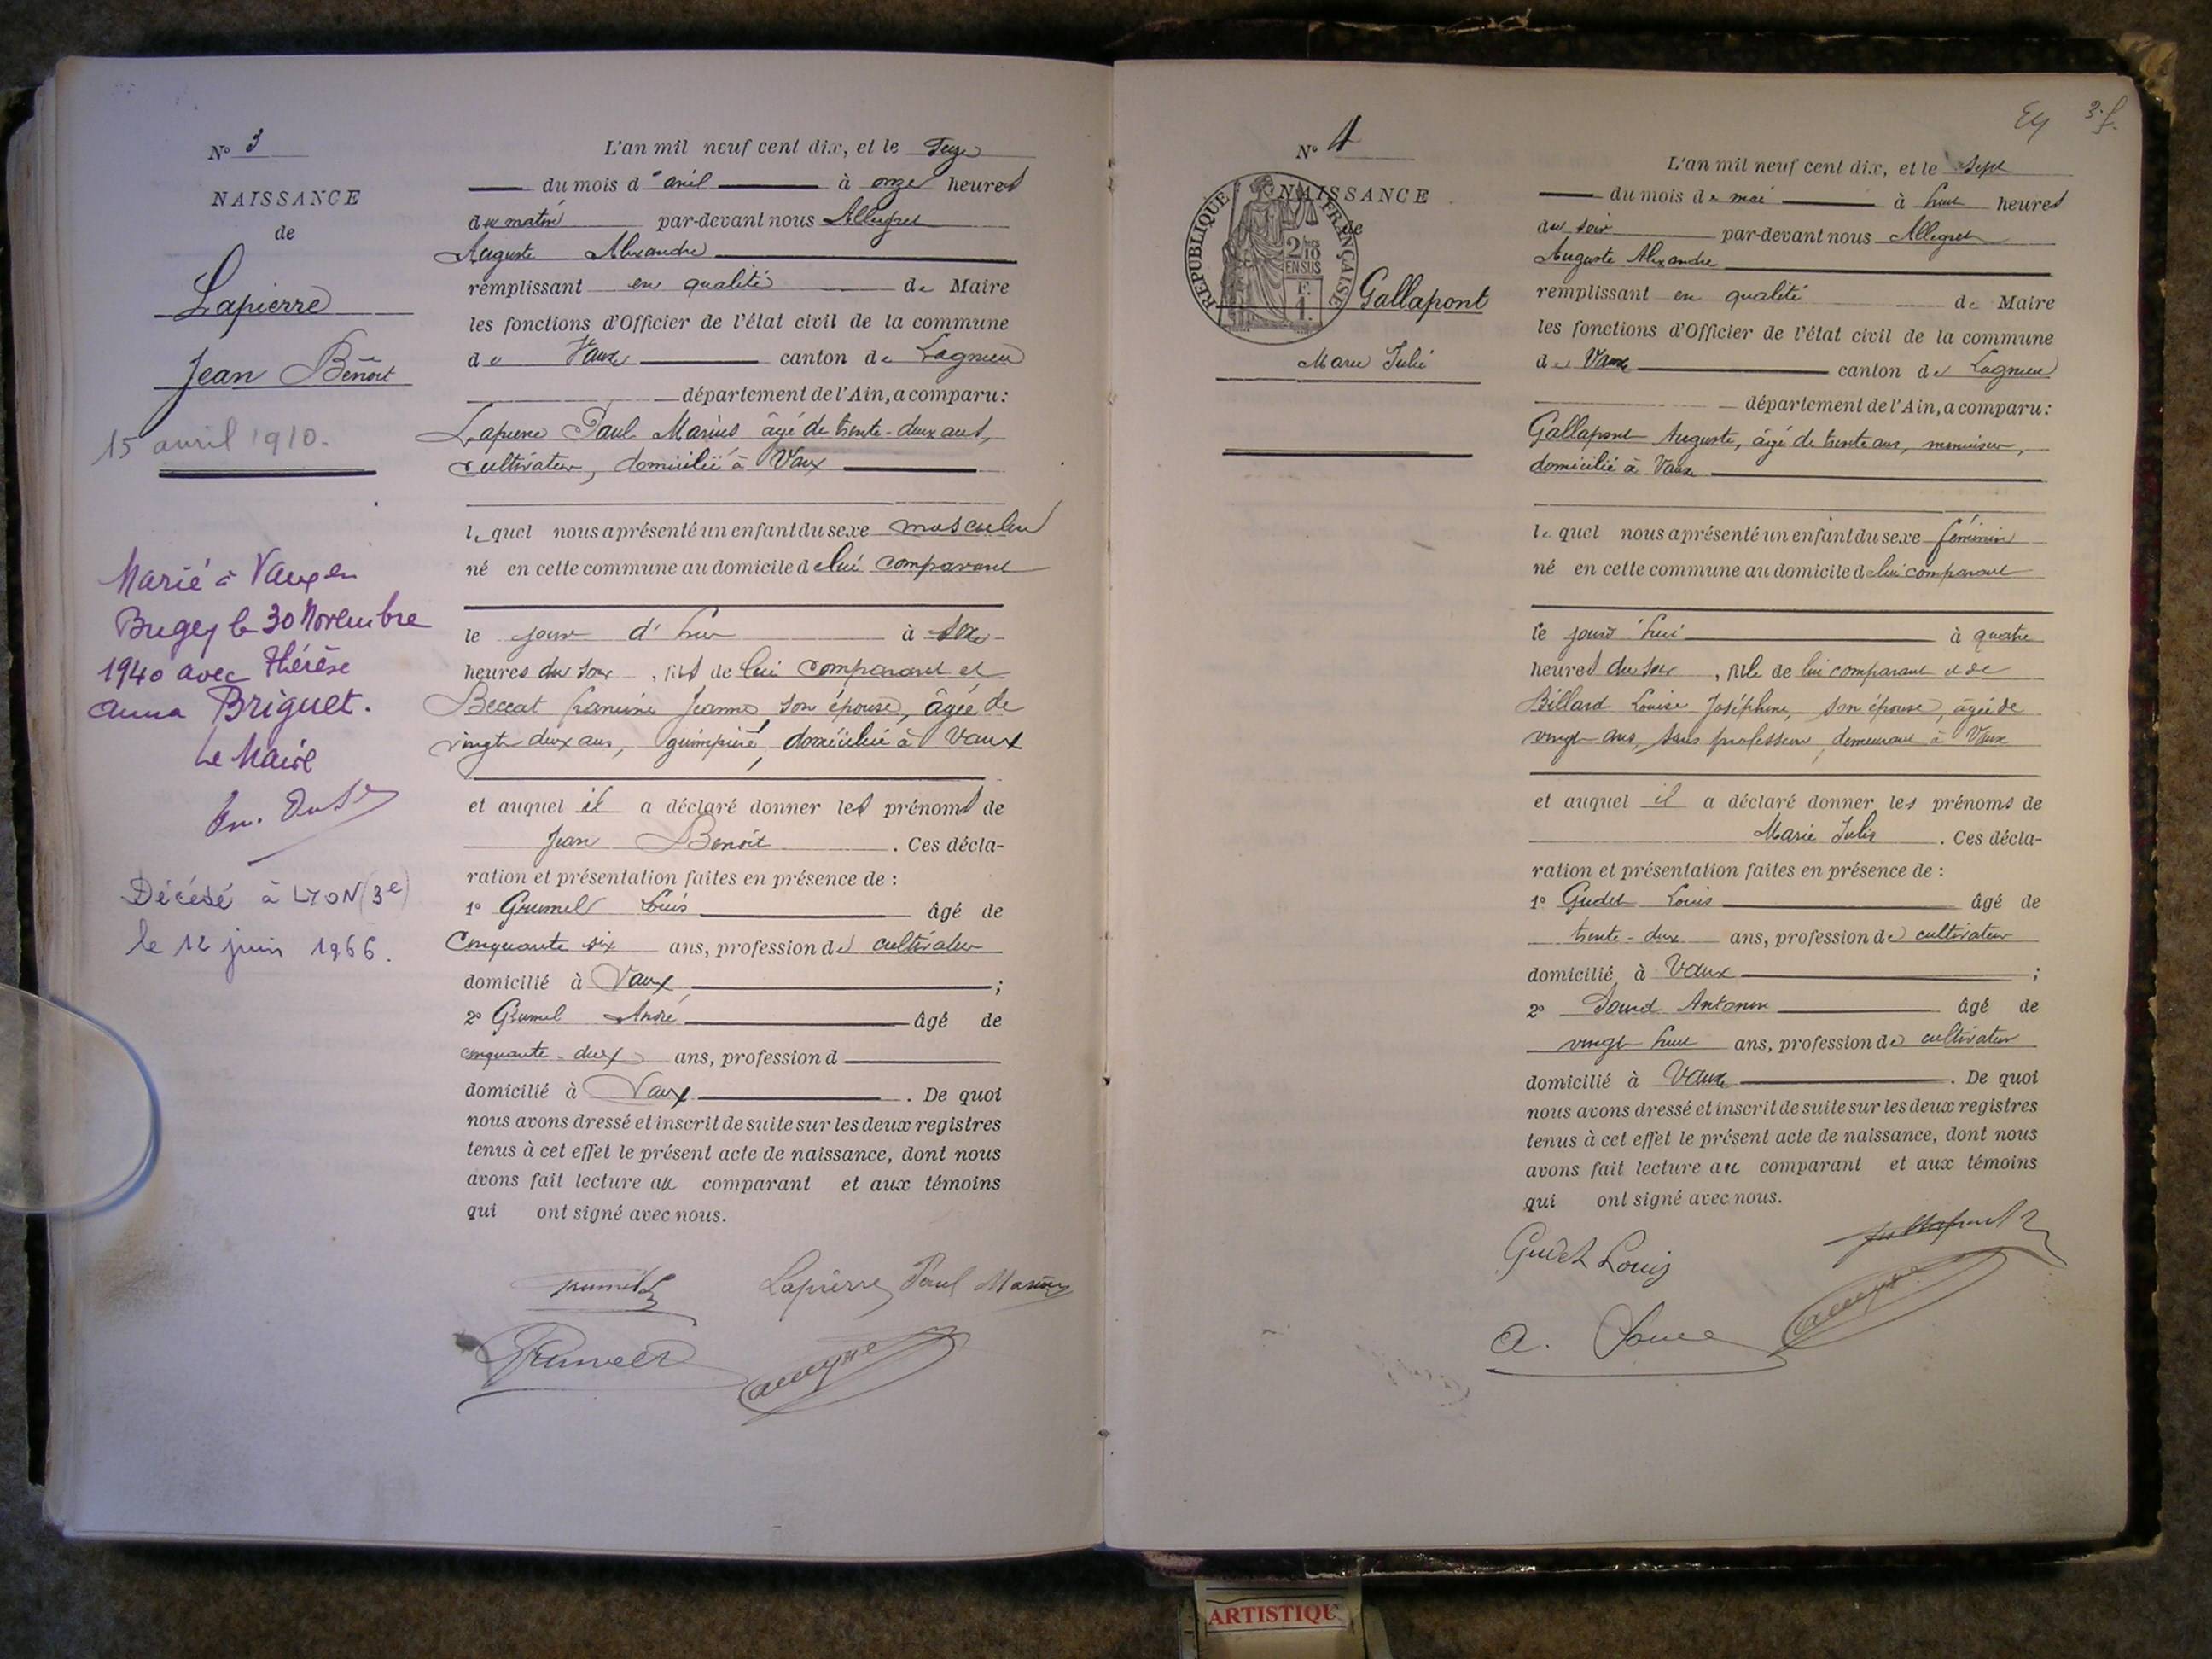 N° 3
NAISSANCE
de
Lapierre
Jean Benoit
15 avril 1910.
Marié à Vaux en
Bugey le 30 Novembre
1940 avec Thérèse
Anna Briguet.
Le Maire
Décédé à LYON (3e)
le 12 juin 1966.
L'an mil neuf cent dix, et le seize
du mois d'avril à onze heures
du matin par-devant nous Allegret
Auguste Alexandre
remplissant en qualité de Maire
les fonctions d'Officier de l'état civil de la commune
de Vaux canton de Lagnieu
département de l'Ain, a comparu:
Lapierre Paul Marius âgé de trente-deux ans,
cultivateur, domicilié à Vaux
lequel nous a présenté un enfant du sexe masculin
né en cette commune au domicile de lui comparant
le jour d'hui à
heures du soir, fils de lui comparant et
Beccat Jeanne, son épouse, âgée de
vingt deux ans, domiciliée à Vaux
et auquel il a déclaré donner les prénoms de
Jean Benoit. Ces décla-
ration et présentation faites en présence de :
1° Grumel Louis âgé de
Cinquante six ans, profession de cultivateur
domicilié à Vaux ;
2° Grumel André âgé de
cinquante-deux ans, profession d
domicilié à Vaux. De quoi
nous avons dressé et inscrit de suite sur les deux registres
tenus à cet effet le présent acte de naissance, dont nous
avons fait lecture au comparant et aux témoins
qui ont signé avec nous.
Lapierre Paul Marius
3 f.
N° 4
NAISSANCE
de
RÉPUBLIQUE FRANÇAISE
2/10
EN SUS
F.
1.
Gallapont
Marie Julie
L'an mil neuf cent dix, et le sept
du mois de mai à huit heures
du soir par-devant nous Allegret
Auguste Alexandre
remplissant en qualité de Maire
les fonctions d'Officier de l'état civil de la commune
de Vaux canton de Lagnieu
département de l'Ain, a comparu:
Gallapont Auguste, âgé de trente ans, menuisier,
domicilié à Vaux
lequel nous a présenté un enfant du sexe féminin
né en cette commune au domicile de lui comparant
le jourd'hui à quatre
heures du soir, fille de lui comparant et de
Billard Louise Joséphine, son épouse, âgée de
vingt ans, sans profession, demeurant à Vaux
et auquel il a déclaré donner les prénoms de
Marie Julie. Ces décla-
ration et présentation faites en présence de :
1° Gudet Louis âgé de
trente-deux ans, profession de cultivateur
domicilié à Vaux ;
2° Antonin âgé de
vingt huit ans, profession de cultivateur
domicilié à Vaux. De quoi
nous avons dressé et inscrit de suite sur les deux registres
tenus à cet effet le présent acte de naissance, dont nous
avons fait lecture au comparant et aux témoins
qui ont signé avec nous.
Gudet Louis
ARTISTIQU